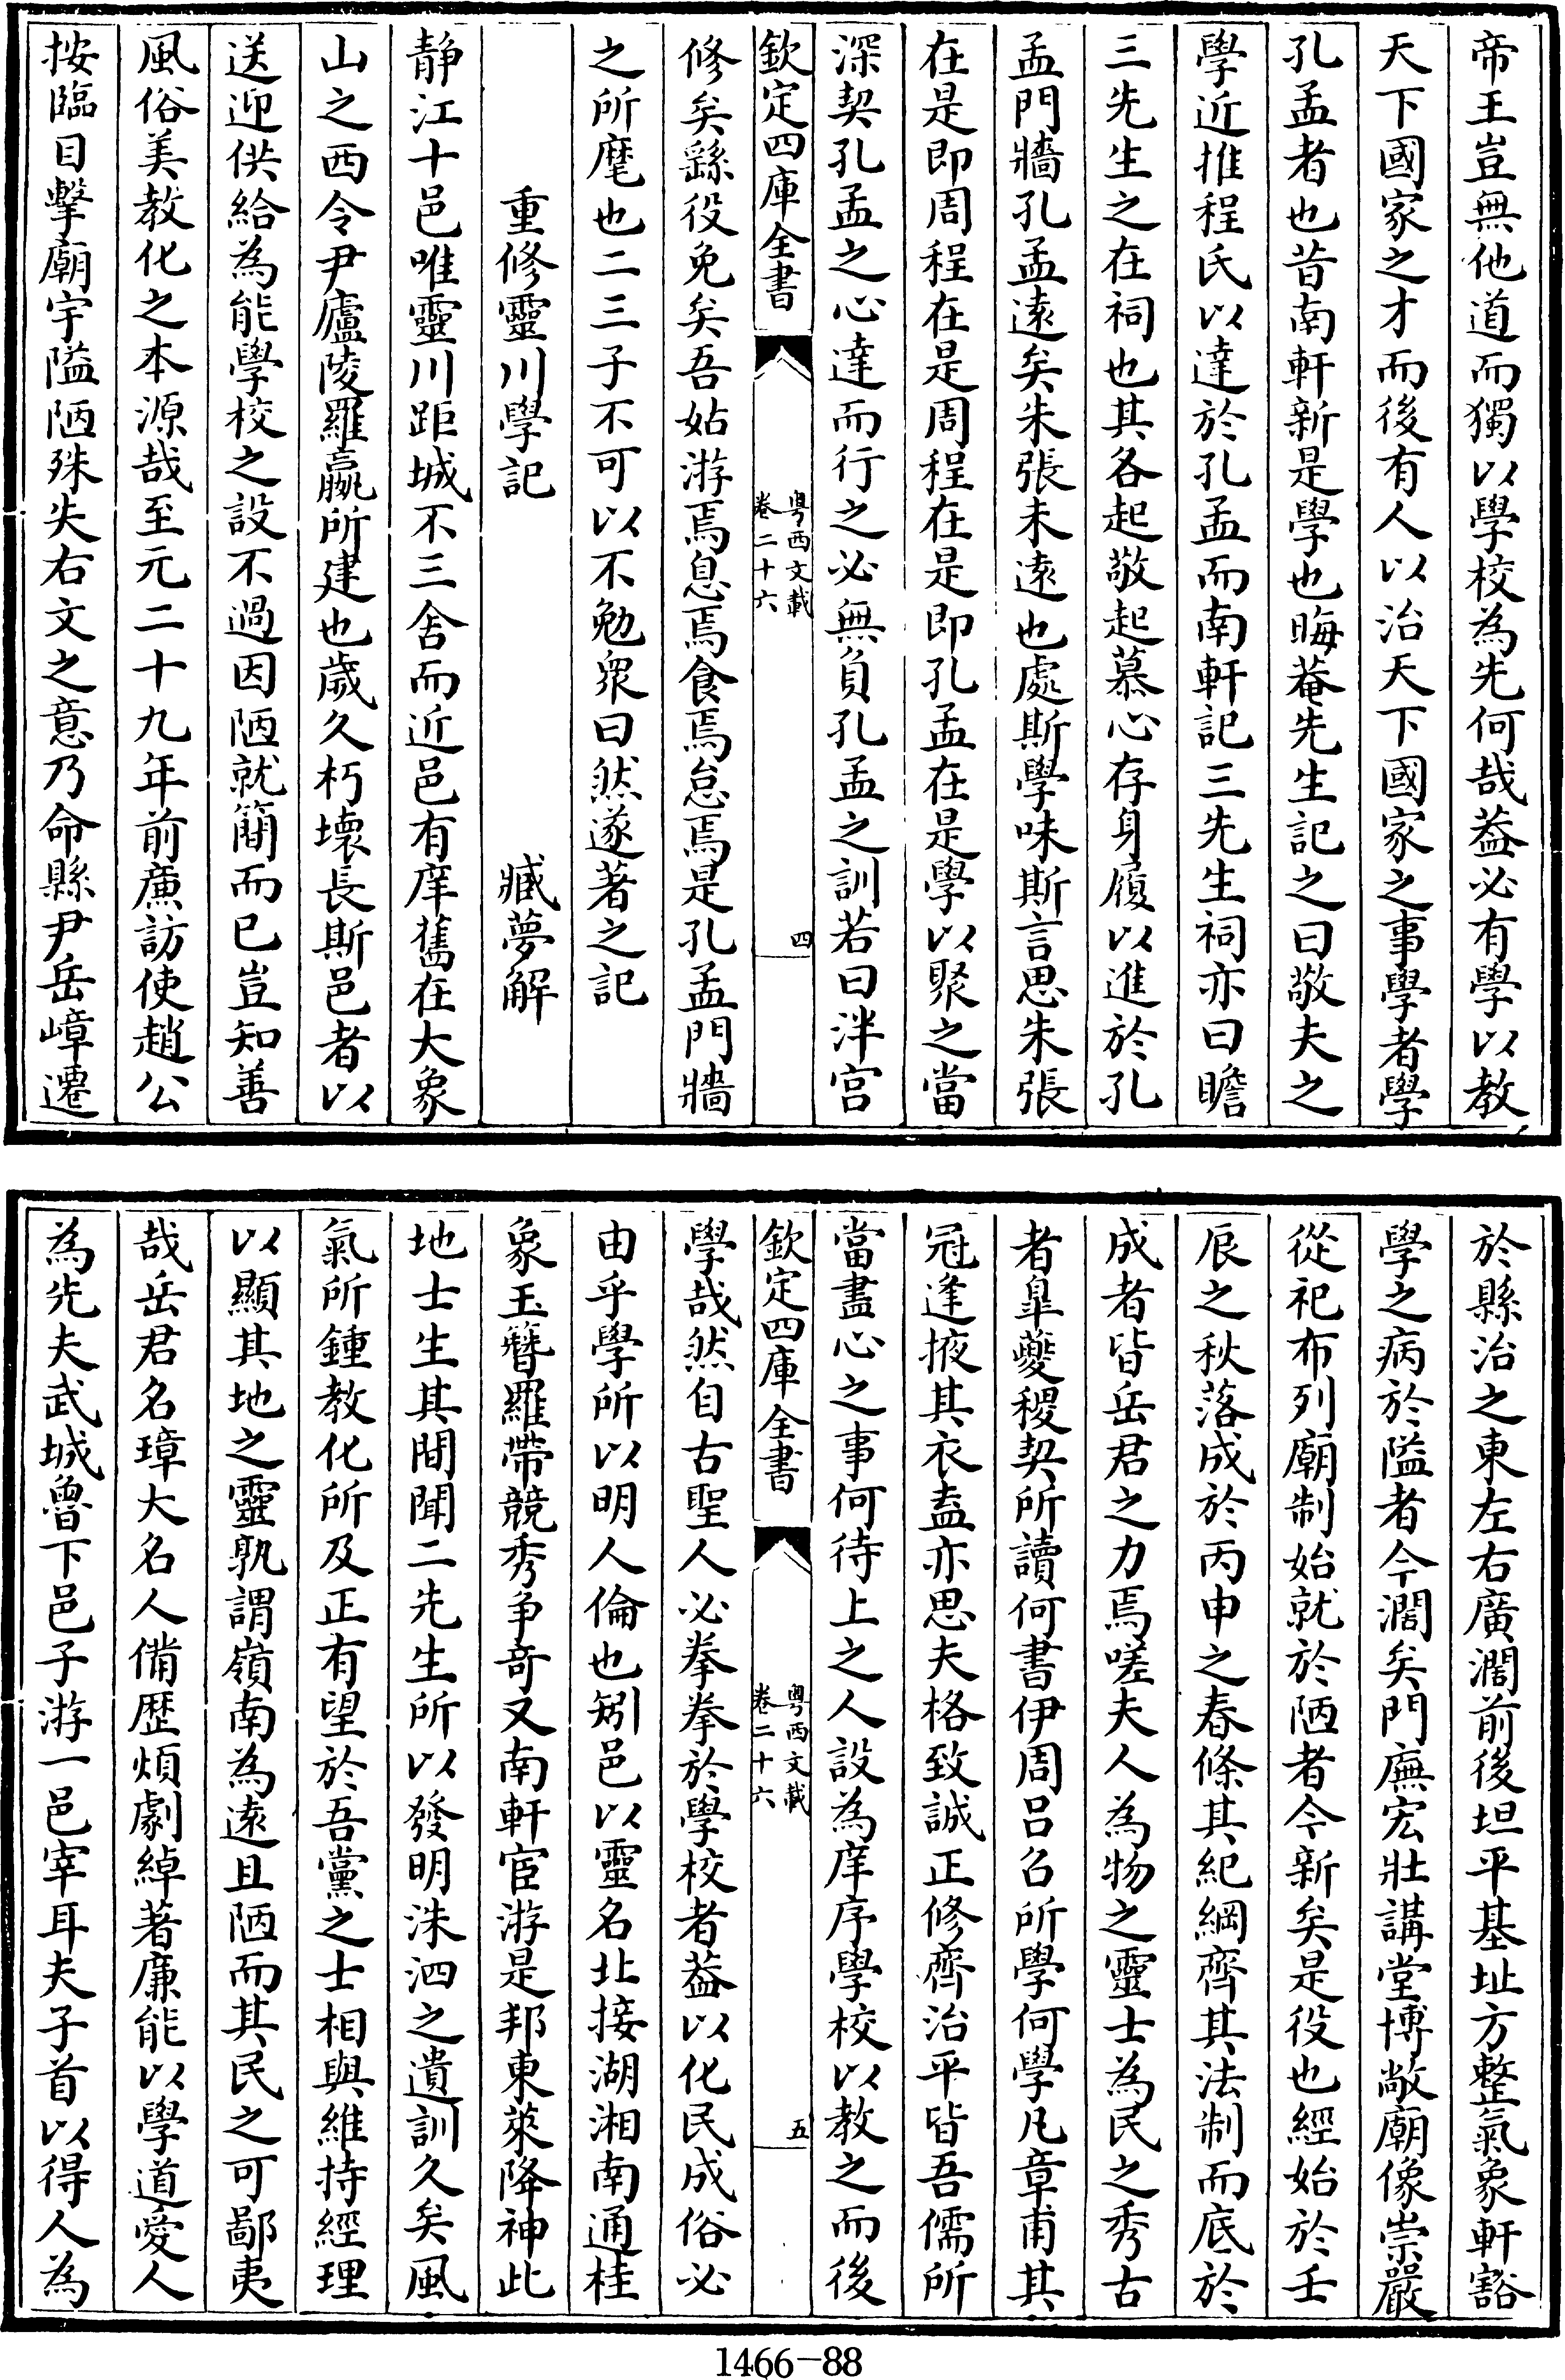 帝王豈無他道而獨以學校為先何哉葢必有學以教
天下國家之才而後有人以治天下國家之事學者學
孔孟者也昔南軒新是學也晦菴先生記之曰敬夫之
學近推程氏以達於孔孟而南軒記三先生祠亦曰瞻
三先生之在祠也其各起敬起慕心存身履以進於孔
孟門牆孔孟逺矣朱張未逺也處斯學味斯言思朱張
在是即周程在是周程在是即孔孟在是學以聚之當
深契孔孟之心達而行之必無負孔孟之訓若曰泮宫
欽定四庫全書
粤西文載
卷二十六
四
修矣繇役免矣吾姑游焉息焉食焉怠焉是孔孟門牆
之所麾也二三子不可以不勉衆曰然遂著之記
重修靈川學記
臧夢解
静江十邑唯靈川距城不三舍而近邑有庠舊在大象
山之西令尹廬陵羅嬴所建也歲久朽壞長斯邑者以
送迎供給為能學校之設不過因陋就簡而已豈知善
風俗美教化之本源哉至元二十九年前亷訪使趙公
按臨目擊廟宇隘陋殊失右文之意乃命縣尹岳嶂遷
於縣治之東左右廣濶前後坦平基址方整氣象軒豁
學之病於隘者今濶矣門廡宏壯講堂博敞廟像崇嚴
從祀布列廟制始就於陋者今新矣是役也經始於壬
辰之秋落成於丙申之春條其紀綱齊其法制而底於
成者皆岳君之力焉嗟夫人為物之靈士為民之秀古
者臯夔稷契所讀何書伊周吕召所學何學凡章甫其
冠逢掖其衣盍亦思夫格致誠正修齊治平皆吾儒所
當盡心之事何待上之人設為庠序學校以教之而後
欽定四庫全書
粤西文載
卷二十六
五
學哉然自古聖人必拳拳於學校者葢以化民成俗必
由乎學所以明人倫也矧邑以靈名北接湖湘南通桂
象玉簪羅帶競秀争竒又南軒宦游是邦東萊降神此
地士生其間聞二先生所以發明洙泗之遺訓久矣風
氣所鍾教化所及正有望於吾黨之士相與維持經理
以顯其地之靈孰謂嶺南為逺且陋而其民之可鄙夷
哉岳君名璋大名人備歴煩劇綽著廉能以學道愛人
為先夫武城魯下邑子游一邑宰耳夫子首以得人為
1466-88